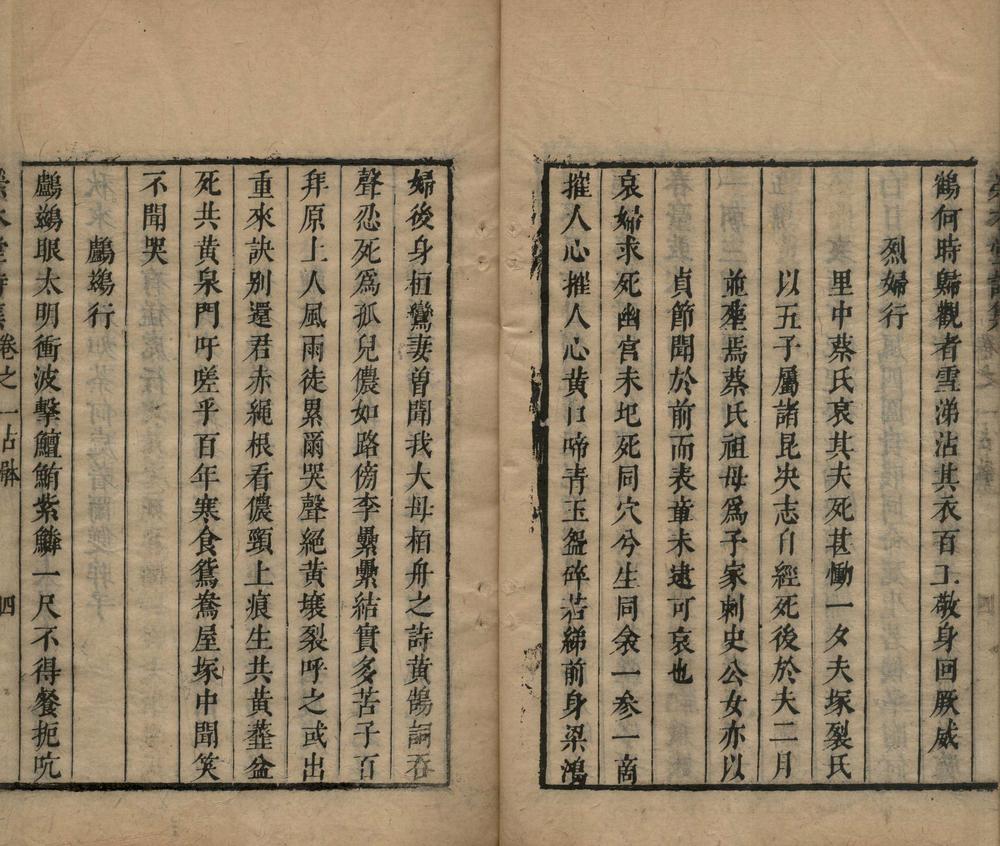 鶴何時歸觀者雪涕沾其衣百工敬身回厥威
烈婦行
里中蔡氏哀其夫死甚慟一夕夫塚裂氏
以五子屬諸昆決志自經死後於夫二月
並塟焉蔡氏祖母爲子家刺史公女亦以
貞節聞於前而表章未逮可哀也
哀婦求死幽宮未圮死同穴兮生同衾一參一商
摧人心摧人心黃口啼青玉盌碎若綈前身梁鴻
婦後身桓鸞妻曾聞我大母栢舟之詩黃鵠詞吞
聲忍死爲孤兒儂如路傍李纍纍結實多苦子百
拜原上人風雨徒累爾哭聲絕黃壤裂呼之或出
重來訣別還君赤繩根看儂頸上痕生共黃虀盆
死共黃泉門吁嗟乎百年寒食鴛鴦屋塚中聞笑
不聞哭
鸕鷀行
鸕鷀眼太明衝波擊鱣鮪紫鱗一尺不得餐扼吭
卷之一 古體 四